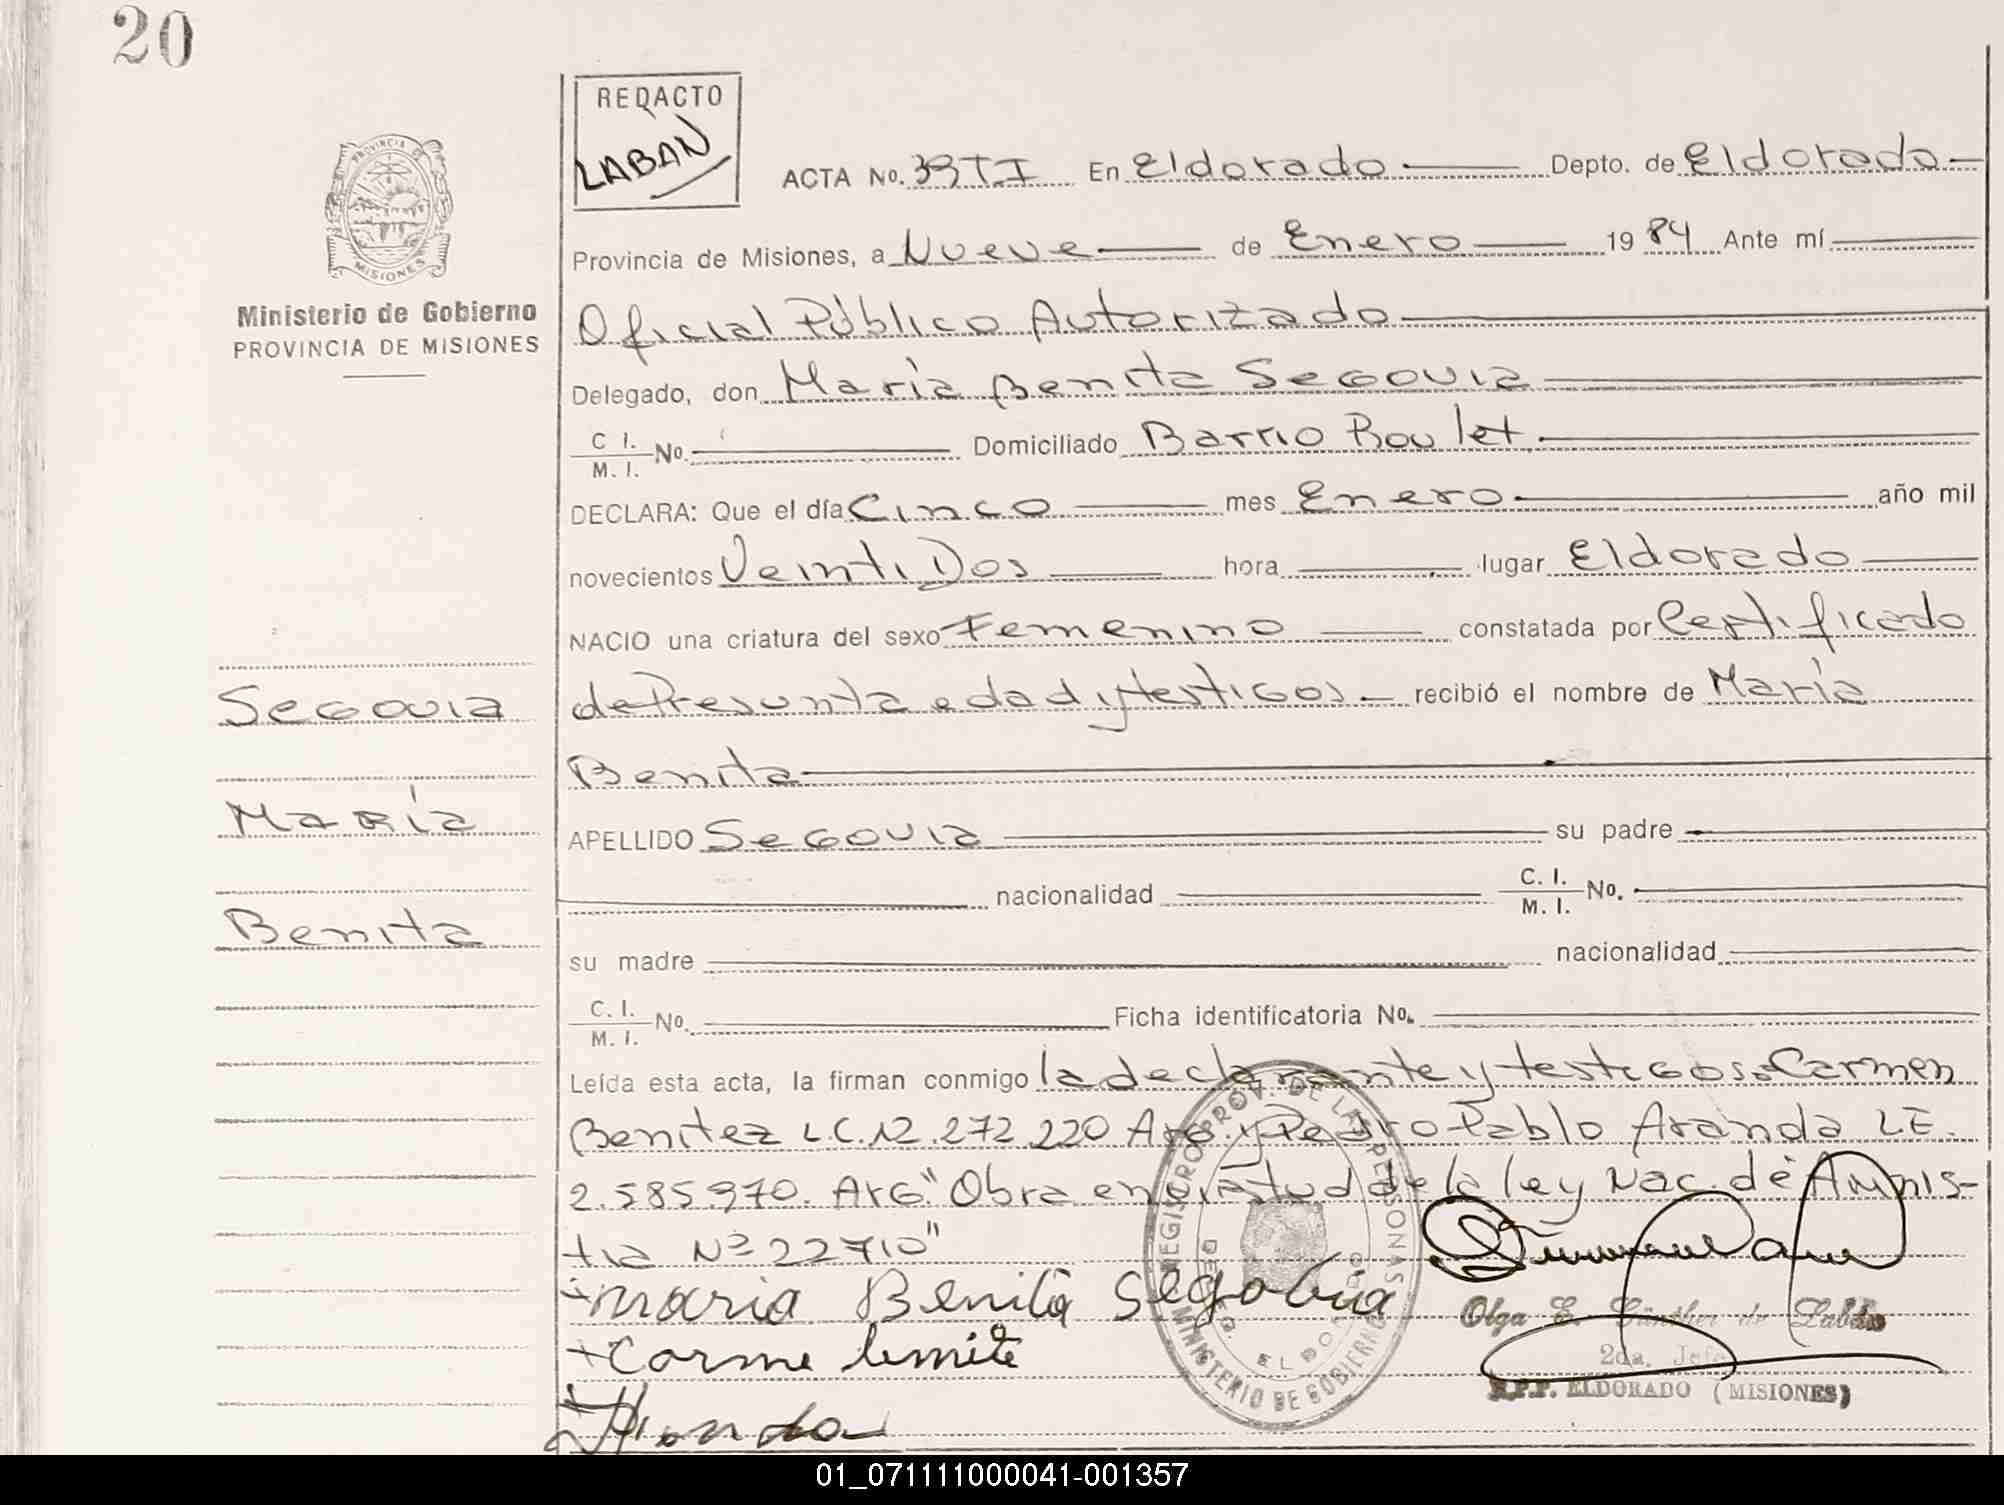 20
REDACTO
LABAN
PROVINCIA DE
MISIONES
Ministerio de Gobierno
PROVINCIA DE MISIONES
ACTA No. 39TI En Eldorado Depto. de Eldorado
Provincia de Misiones, a Nueve de Enero 19 84 Ante mí
Oficial Público Autorizado
Delegado, don María Benita Segovia
C I. M. I. No. Domiciliado Barrio Roulet
DECLARA: Que el día Cinco mes Enero año mil
novecientos Veinti Dos hora lugar Eldorado
NACIO una criatura del sexo Femenino constatada por Certificado
de Presunta edad y testigos recibió el nombre de María
Benita
APELLIDO Segovia su padre
nacionalidad C. I. M. I. No.
su madre nacionalidad
C. I. M. I. No. Ficha identificatoria No.
Leída esta acta, la firman conmigo la declarante y testigos: Carmen
Benitez L.C. 12.272.220 Arg. y Pedro Pablo Aranda L.E.
2.585.970. Arg. "Obra en virtud de la ley Nac. de Amnis-
tia Nº 22710"
Segovia
María
Benita
+ maria Benita Segobia
+ Corme
REGISTRO PROV. DE LAS PERSONAS
MINISTERIO DE GOBIERNO
ELDORADO
Olga E. Günther de Labán
2da. Jefe
R.P.P. ELDORADO (MISIONES)
01_071111000041-001357